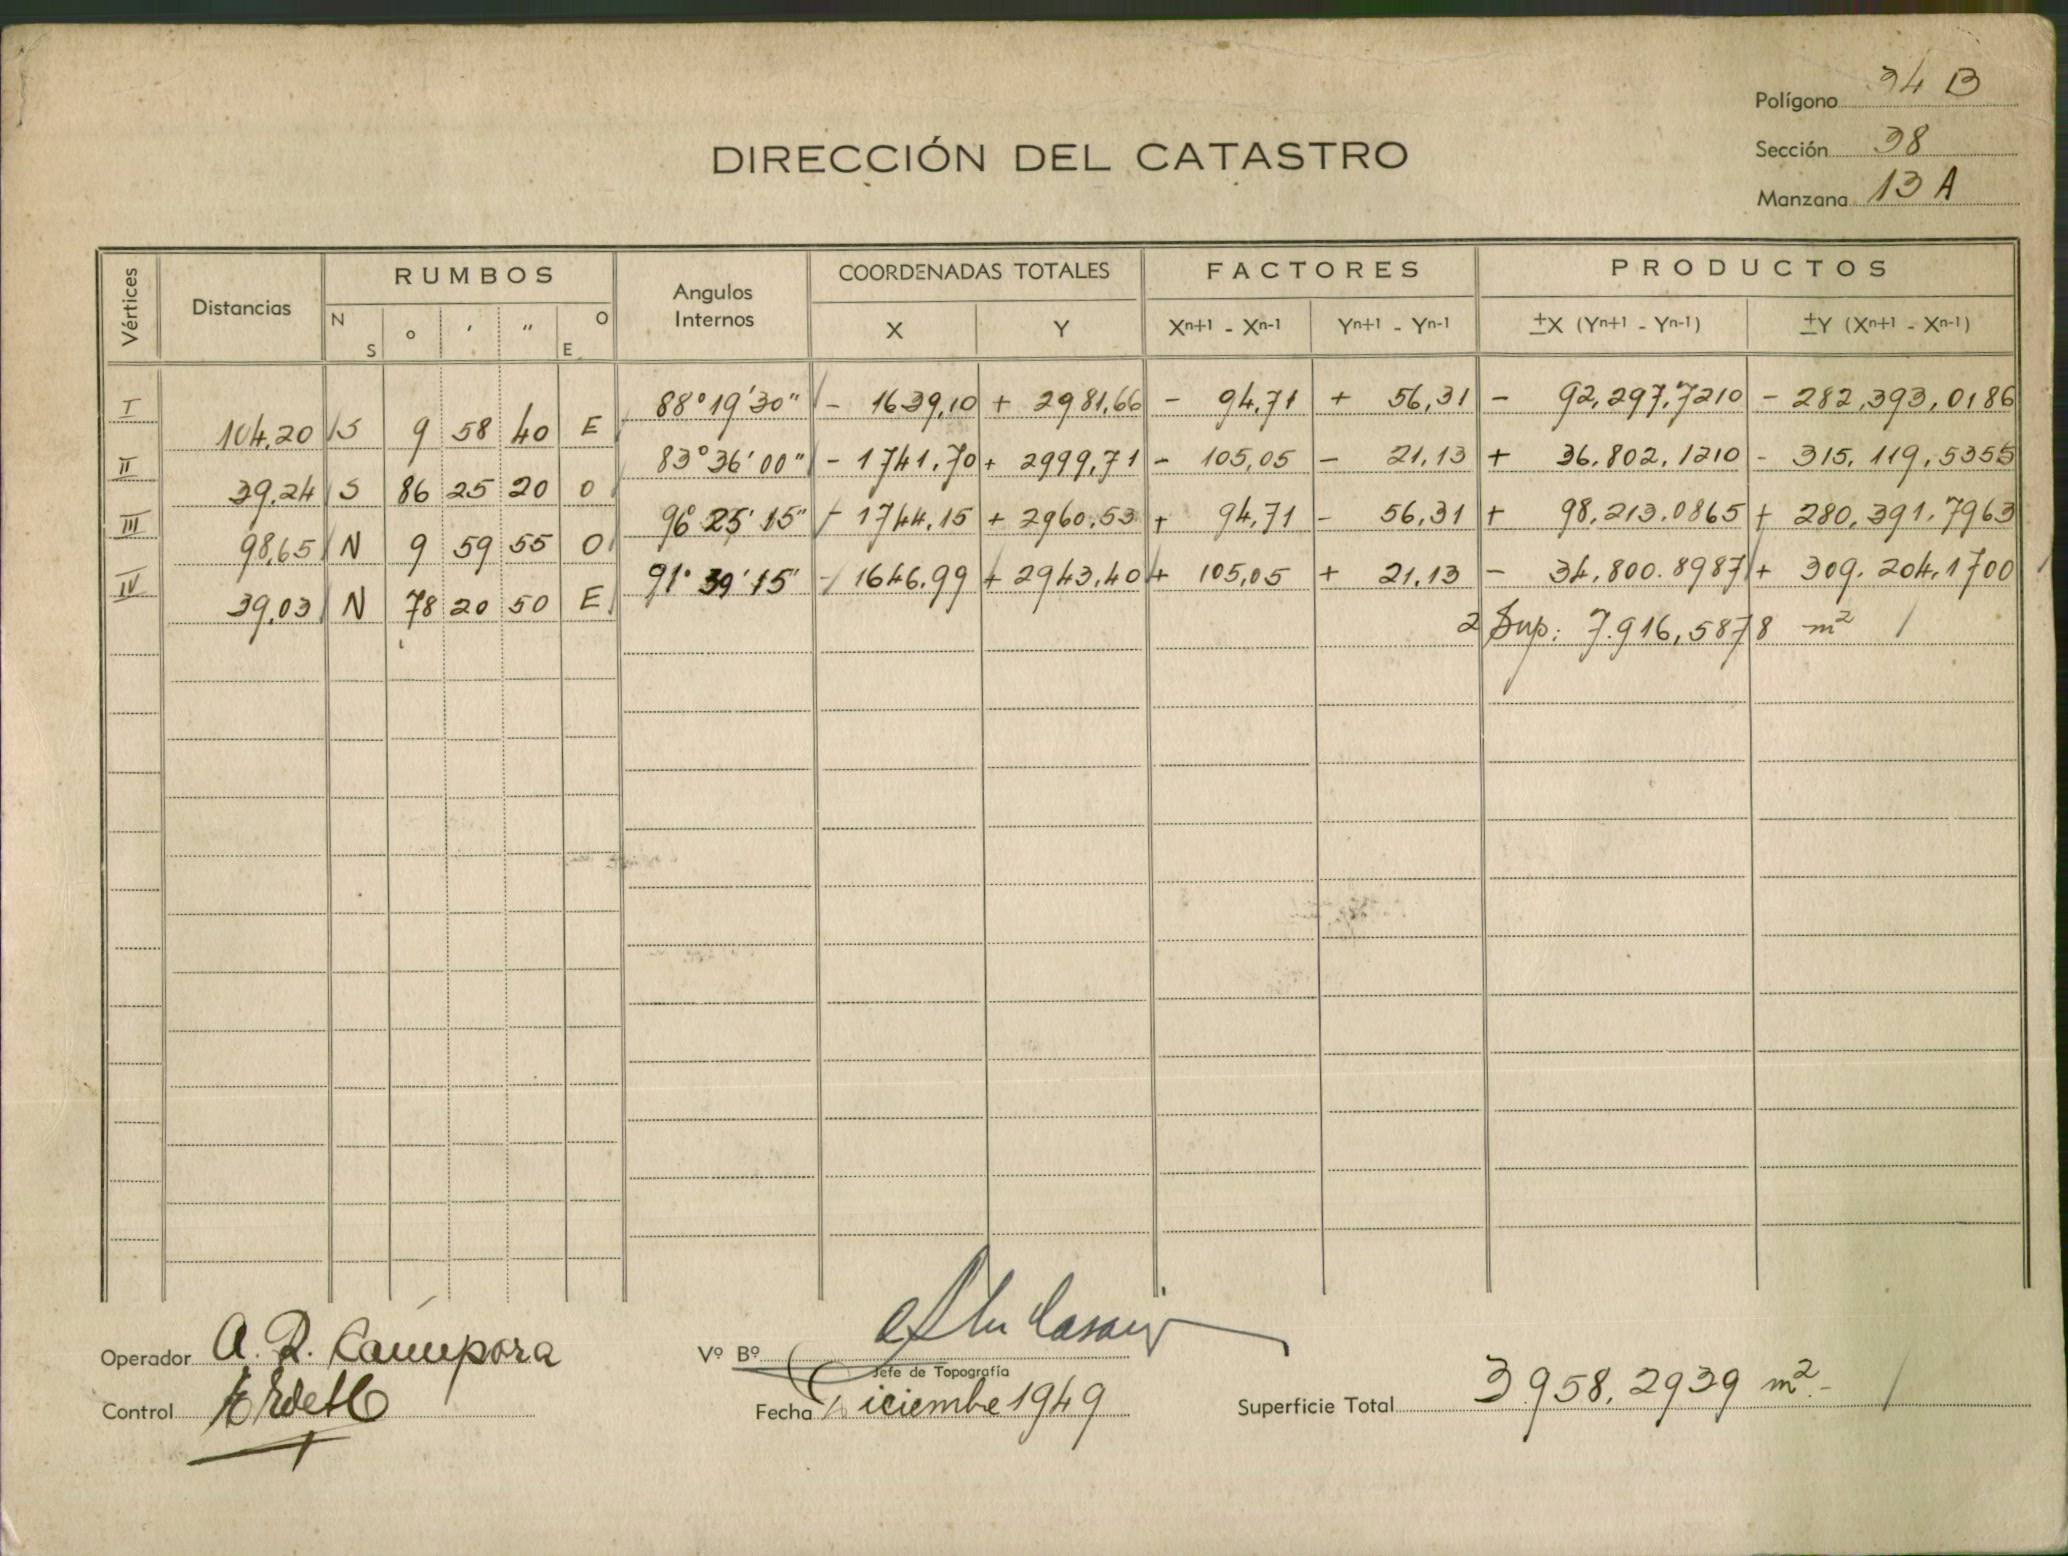 Polígono 34 B
Sección 38
Manzana 13 A
DIRECCIÓN DEL CATASTRO
Vértices Distancias RUMBOS Angulos Internos COORDENADAS TOTALES FACTORES PRODUCTOS
N S ° ' " O E X Y Xⁿ⁺¹ - Xⁿ⁻¹ Yⁿ⁺¹ - Yⁿ⁻¹ ±X (Yⁿ⁺¹ - Yⁿ⁻¹) ±Y (Xⁿ⁺¹ - Xⁿ⁻¹)
I 88° 19' 30" - 1639,10 + 2981,66 - 94,71 + 56,31 - 92,297,7210 - 282,393,0186
104,20 S 9 58 40 E
II 83° 36' 00" - 1741,70 + 2999,71 - 105,05 - 21,13 + 36.802,1210 - 315,119,5355
39,24 S 86 25 20 O
III 96° 25' 15" - 1744,15 + 2960,53 + 94,71 - 56,31 + 98,213.0865 + 280,391,7963
98,65 N 9 59 55 O
IV 91° 39' 15" - 1646,99 + 2943,40 + 105,05 + 21,13 - 34,800.8987 + 309.204,1700
39,03 N 78 20 50 E
2 Sup: 7.916,5878 m²
Operador A. R. Campora
Vº Bº
Jefe de Topografía
Control
Fecha Diciembre 1949
Superficie Total 3.958,2939 m².-